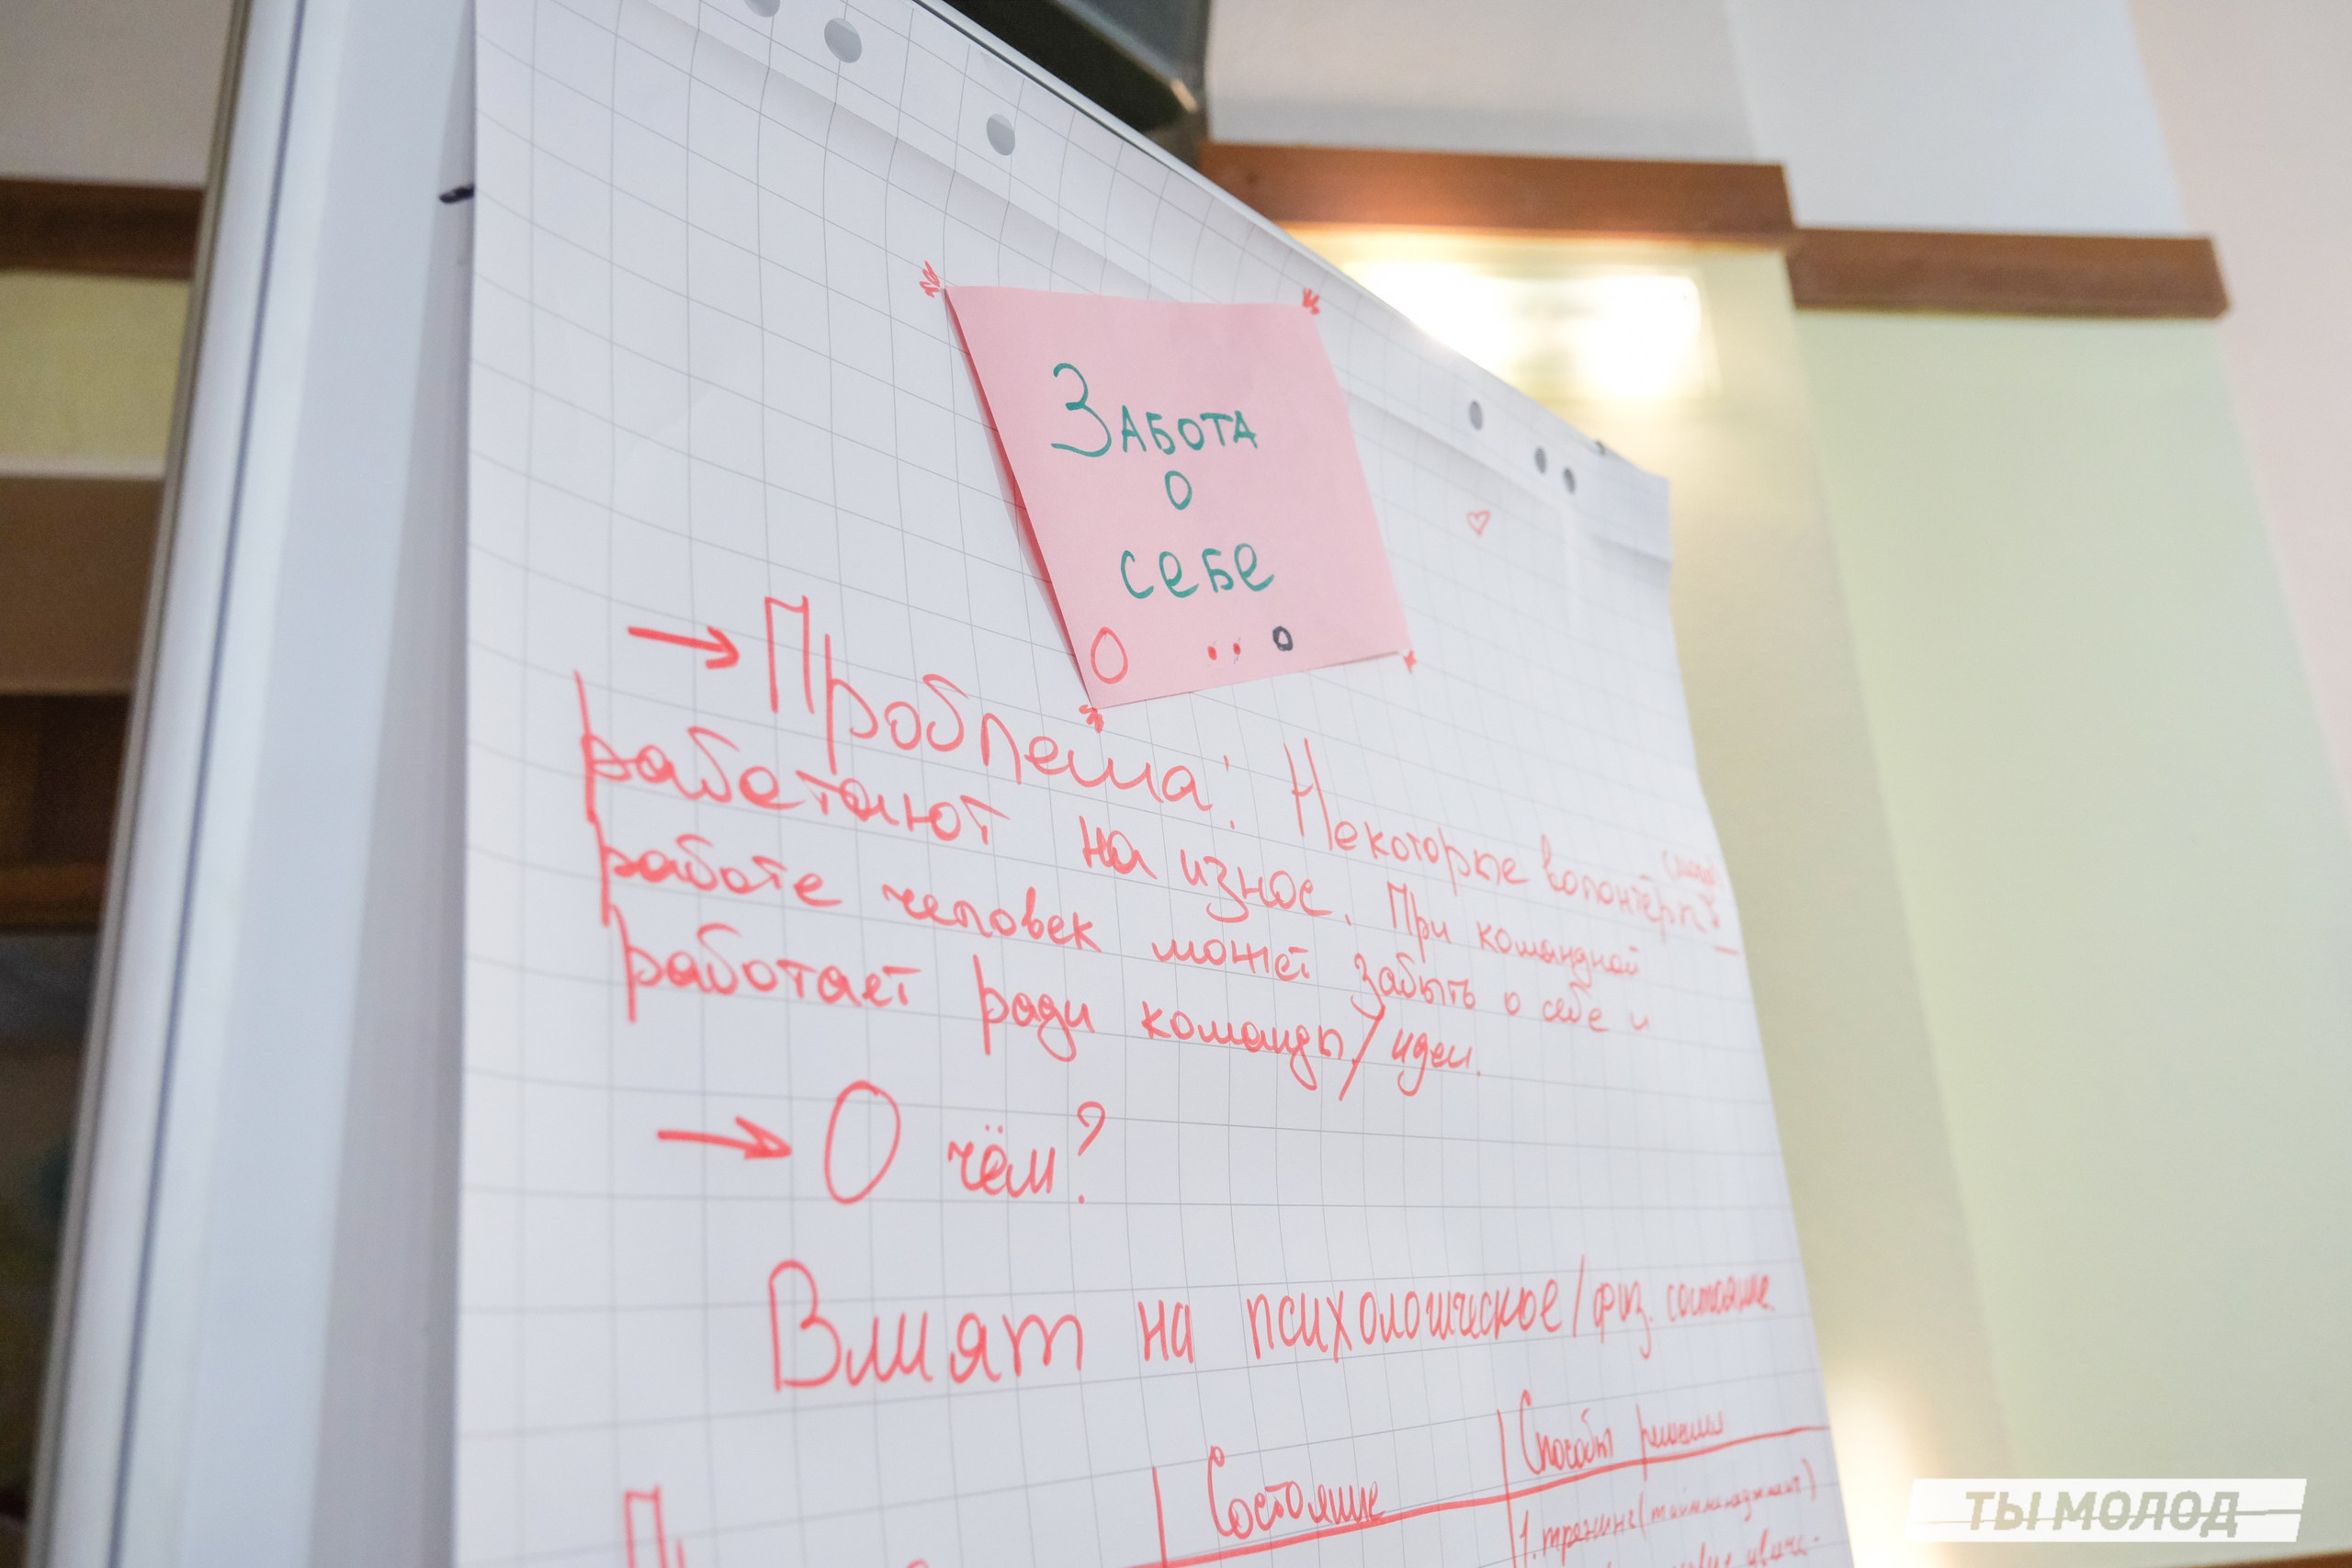 Забота
о
себе
→ Проблема: Некоторые волонтёры
работают на износ. При командной
работе человек может забыть о себе и
работает ради команды/идеи.
→ О чём?
Влият на психологическое/физ. состояние
Состояние
Способы решения
1. тренинг (таймменеджмент)
ТЫ МОЛОД